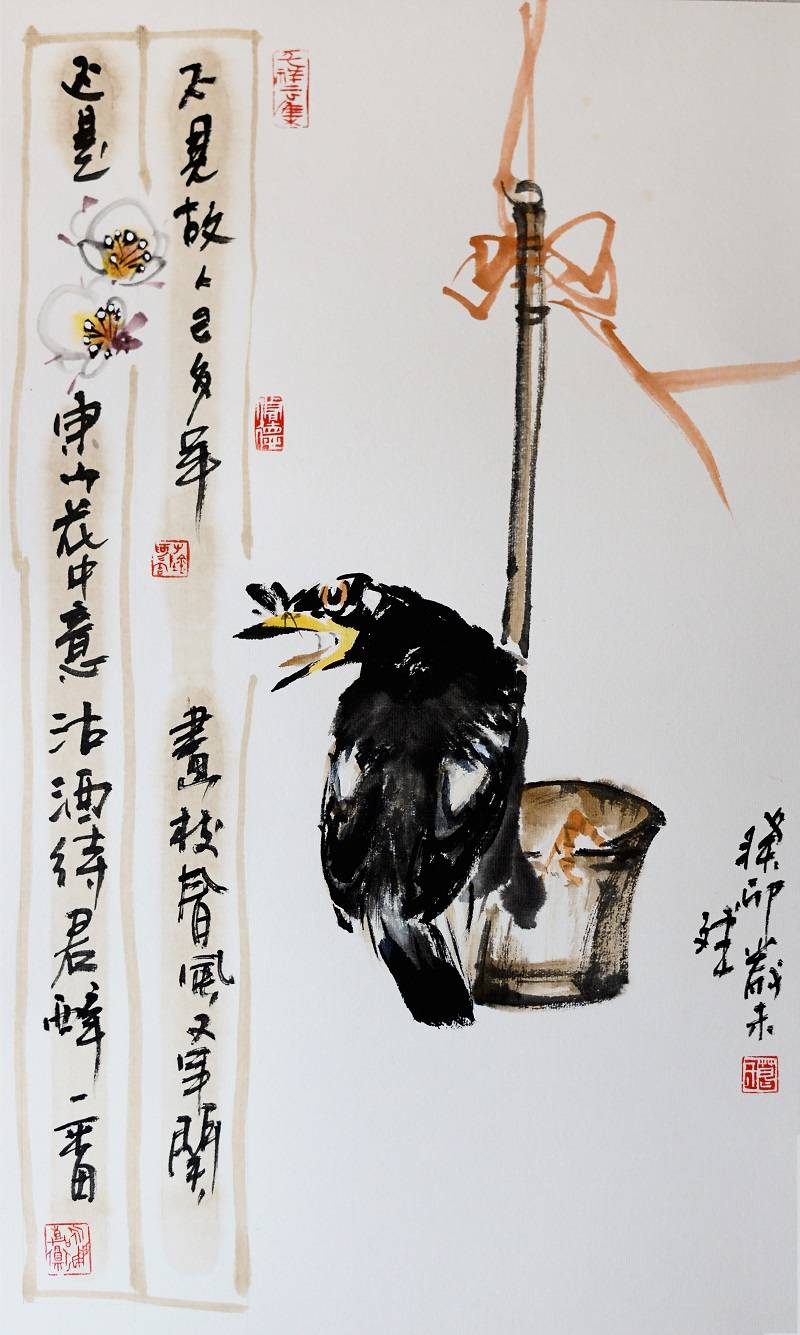 癸卯歲末
不見故人已多年
畫枝春風又年關
还是
東山花中意
沽酒待君醉一番